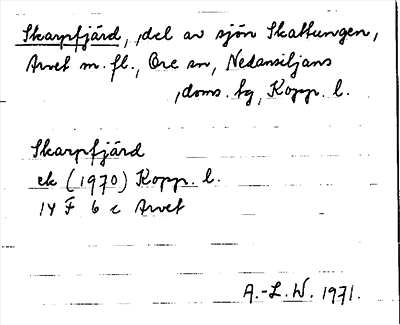 Skarpfjärd, del av sjön Skattungen,
Arvet m. fl., Ore sn, Nedansiljans
doms. tg, Kopp. l.
Skarpfjärd
ek (1970) Kopp. l.
14 F 6 c Arvet
A.-L. W. 1971.